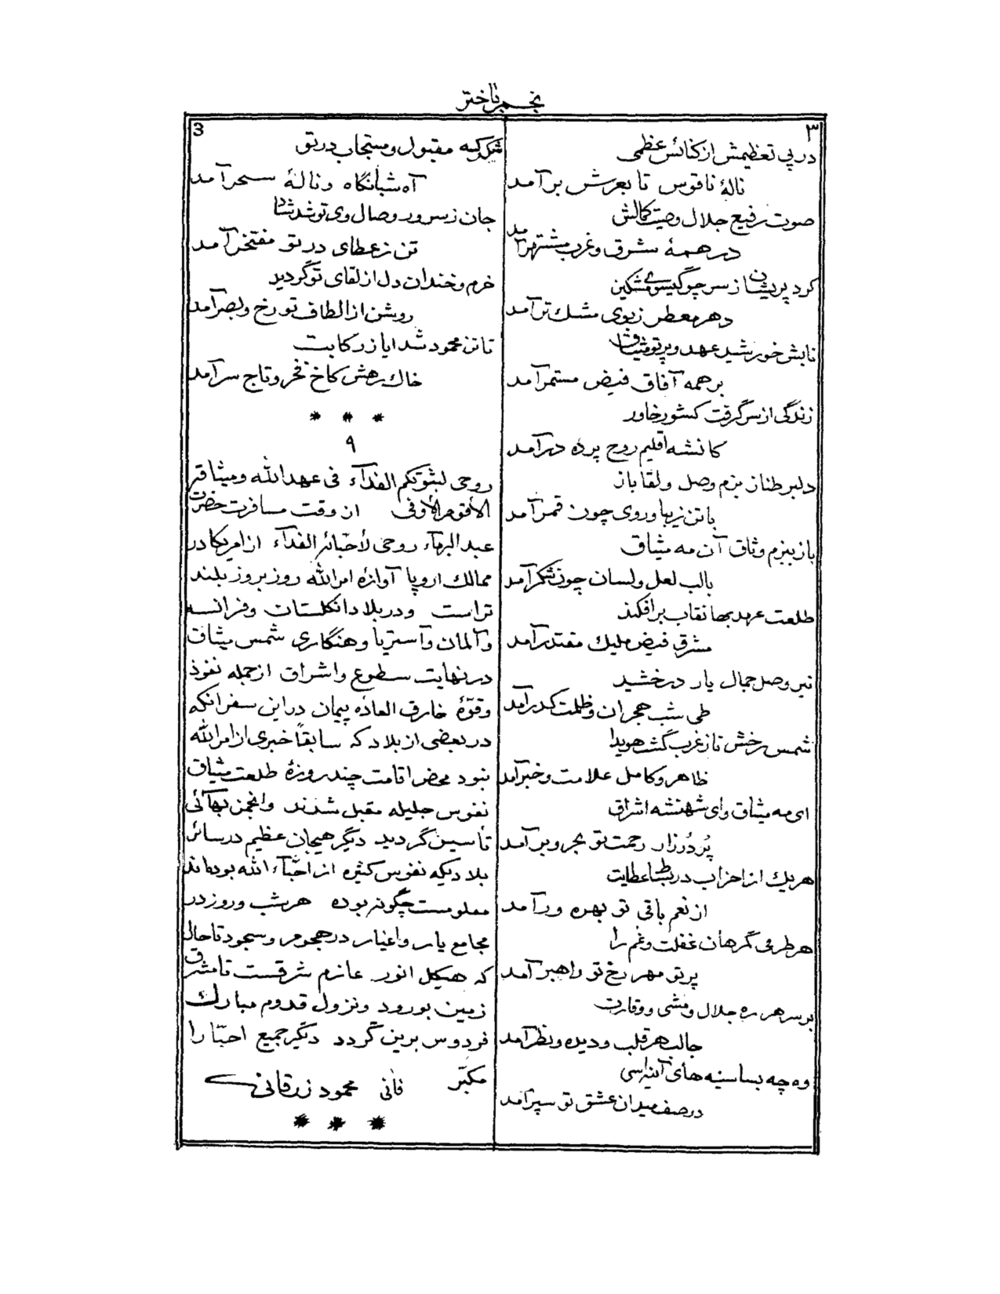 نجم باختر
۳
در پی تعظیمش از کنائس عظمی
نالهٔ ناقوس تا بعرش بر آمد
صوت رفیع جلال وصیت کمالش
در همهٔ شرق و غرب مشتهر آمد
کرد پریشان ز سر چو گیسوی مشکین
دهر معطر زبوی مشك تر آمد
تابش خورشید عهد و پرتو میثاق
بر همه آفاق فیض مستمر آمد
زندگی از سر گرفت کشور خاور
کانشه اقلیم روح پرده در آمد
دلبر طناز بزم وصل و لقا باز
باتن زیبا و روی چون قمر آمد
باز ببزم وثاق آن مه میثاق
بالب لعل و لسان چون شکر آمد
طلعت عهد بها نقاب بر افکند
مشرق فیض ملیك مقتدر آمد
نیر وصل جمال یار درخشید
طی شب هجران و ظلمت کدر آمد
شمس رخش تا ز غرب گشت هویدا
ظاهر و کامل علامت و خبر آمد
ای مه میثاق و ای شهنشه اشراق
پُر دُر زار رحمت تو بحر و بر آمد
هریك از احزاب در بساط عطایت
از نعم باقی تو بهره ور آمد
هر طرفی گمرهان غفلت و غم را
پرتو مهر رخ تو راهبر آمد
بر سر هر ره جلال و مشی و وقارت
جالب هر قلب و دیده و نظر آمد
وه چه بسا سینه های آینه اسی
در صف میدان عشق تو سپر آمد
3
شکر که مقبول و مستجاب در تو
آه شبانگاه و نالهٔ سحر آمد
جان ز سرور وصال وی تو شد شاد
تن ز عطای در تو مفتخر آمد
خرم و خندان دل از لقای تو گردید
روشن از الطاف تو رخ و بصر آمد
تا تن محمود شد ایاز رکابت
خاك رهش کاخ فخر و تاج سر آمد
* * *
۹
روحی لبثوتکم الفداء فی عهد الله و میثاقه
الاقوم الأوفی از وقت مسافرت حضرت
عبد البهاء روحی لأحبائه الفداء از امریکا در
ممالك اروپا آوازه امرالله روز بروز بلند
تر است و در بلاد انکلستان و فرانسه
و آلمان و آستریا و هنگاری شمس میثاق
در نهایت سطوع و اشراق از جمله نفوذ
و قوّهٔ خارق العاده پیمان در این سفر انکه
در بعضی از بلاد که سابقاً خبری از امرالله
نبود محض اقامت چند روزهٔ طلعت میثاق
نفوس جلیله مقبل شدند و انجمن بهائی
تأسیس گردید دیگر هیجان عظیم در سائر
بلاد دیکه نفوس کثیره از احبّاء الله بوده اند
معلومست چگونه بوده هر شب و روز در
مجامع یار و اغیار در هجوم و سجود تا حال
که هیکل انور عازم شرقست تا مشرق
زمین بورود و نزول قدوم مبارك
فردوس برین گردد دیگر جمیع احبّا را
مکبّر فانی محمود زرقانی
* * *